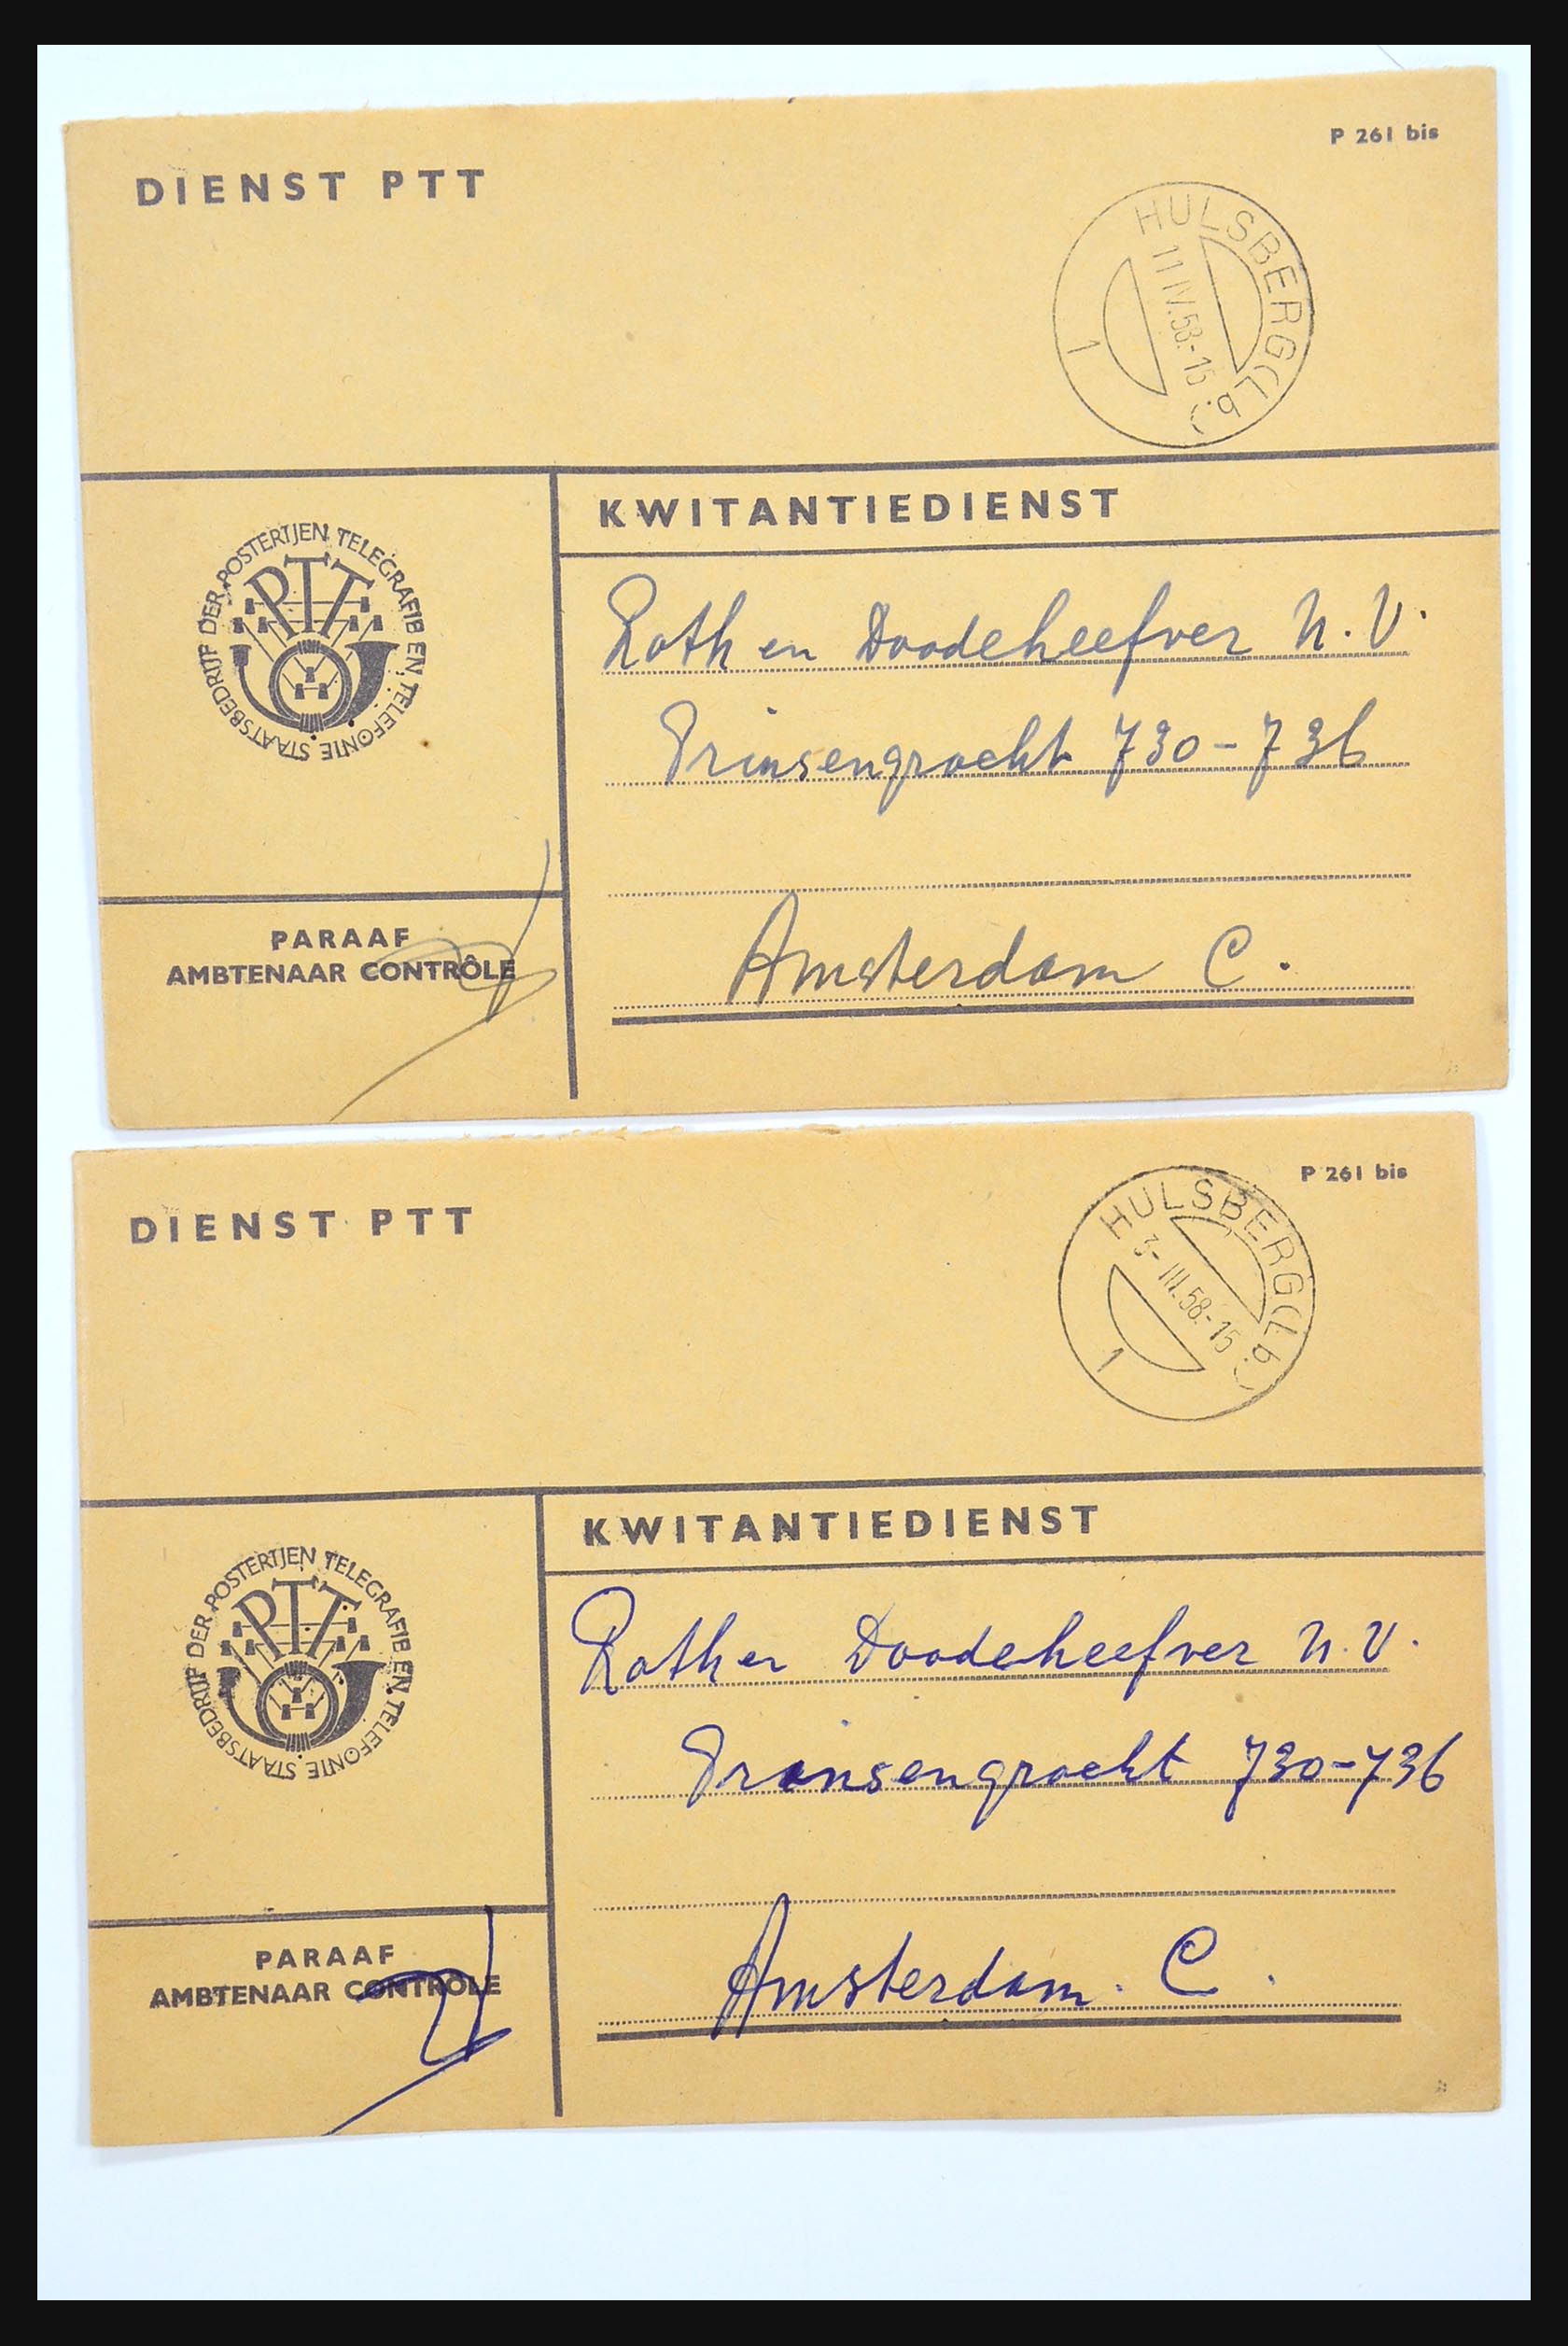 P 261 bis
DIENST PTT
HULSBERG (Lb.)
11 IV.58.-15
1
KWITANTIEDIENST
STAATSBEDRIJF DER POSTERIJEN TELEGRAFIE EN TELEFONIE
PTT
Rath en Doodeheefver N.V.
Prinsengracht 730-736
Amsterdam C.
PARAAF
AMBTENAAR CONTRÔLE
P 261 bis
DIENST PTT
HULSBERG (Lb.)
3- III.58.-15
1
KWITANTIEDIENST
STAATSBEDRIJF DER POSTERIJEN TELEGRAFIE EN TELEFONIE
PTT
Rath en Doodeheefver N.V.
Prinsengracht 730-736
Amsterdam. C.
PARAAF
AMBTENAAR CONTRÔLE